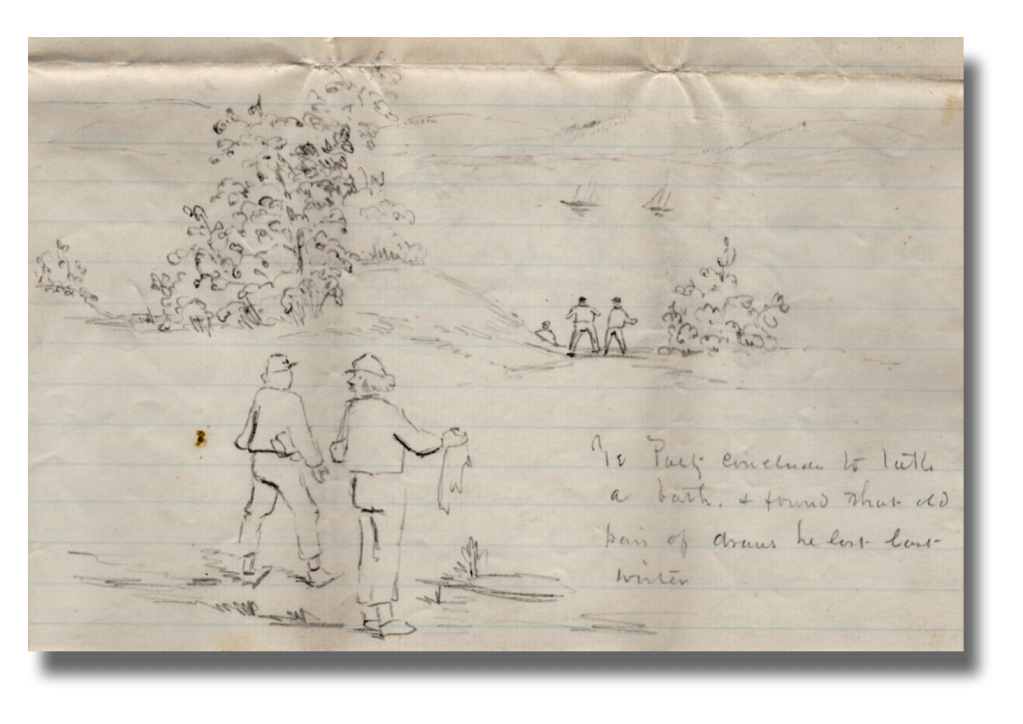 Ye Party conclude to take
a bath. & found that old
pair of draws he lost last
winter